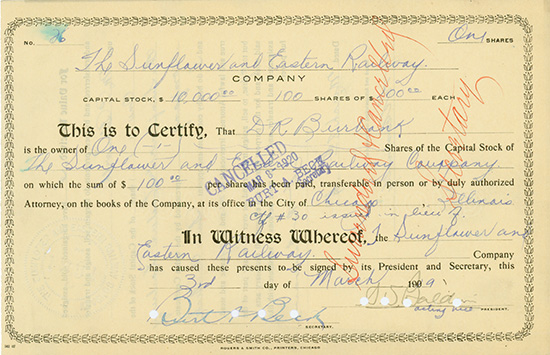 No. 26 One SHARES
The Sunflower and Eastern Railway.
COMPANY
CAPITAL STOCK, $ 10,000.00 100 SHARES OF $ 100.00 EACH
This is to Certify, That D R Burbank
is the owner of One (-1-) Shares of the Capital Stock of
The Sunflower and Eastern Railway Company
on which the sum of $ 100.00 per share has been paid, transferable in person or by duly authorized
Attorney, on the books of the Company, at its office in the City of Chicago Illinois
Ctf #30 issued in lieu of.
CANCELLED
MAR 8 - 1920
BURT A. BECK
Secretary
Surrendered & Cancelled
Secretary
In Witness Whereof, the Sunflower and
Eastern Railway. Company
has caused these presents to be signed by its President and Secretary, this
3rd day of March 1909
Burt A Beck
SECRETARY.
Baldwin
acting vice PRESIDENT.
ROGERS & SMITH CO., PRINTERS, CHICAGO